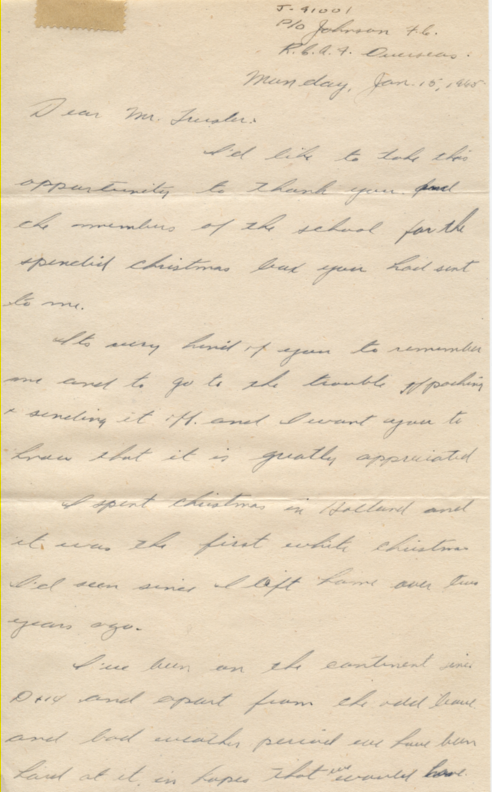 J-91001
P/O Johnson F.C.
R.C.A.F. Overseas.
Munday, Jan. 15, 1945
Dear Mr.
I'd like to take this
opportunity to thank you and
the members of the school for the
spendid christmas box you had sent
to me.
Its very kind of you to remember
me and to go to the trouble of packing
+ sending it off. and I want you to
know that it is greatly appreciated
I spent christmas in Holland and
it was the first white christmas
I'd seen since I left home over two
years ago.
I've been on the continent since
D+14 and apart from the odd leave
and bad weather period we have been
hard at it, in hopes that we would have